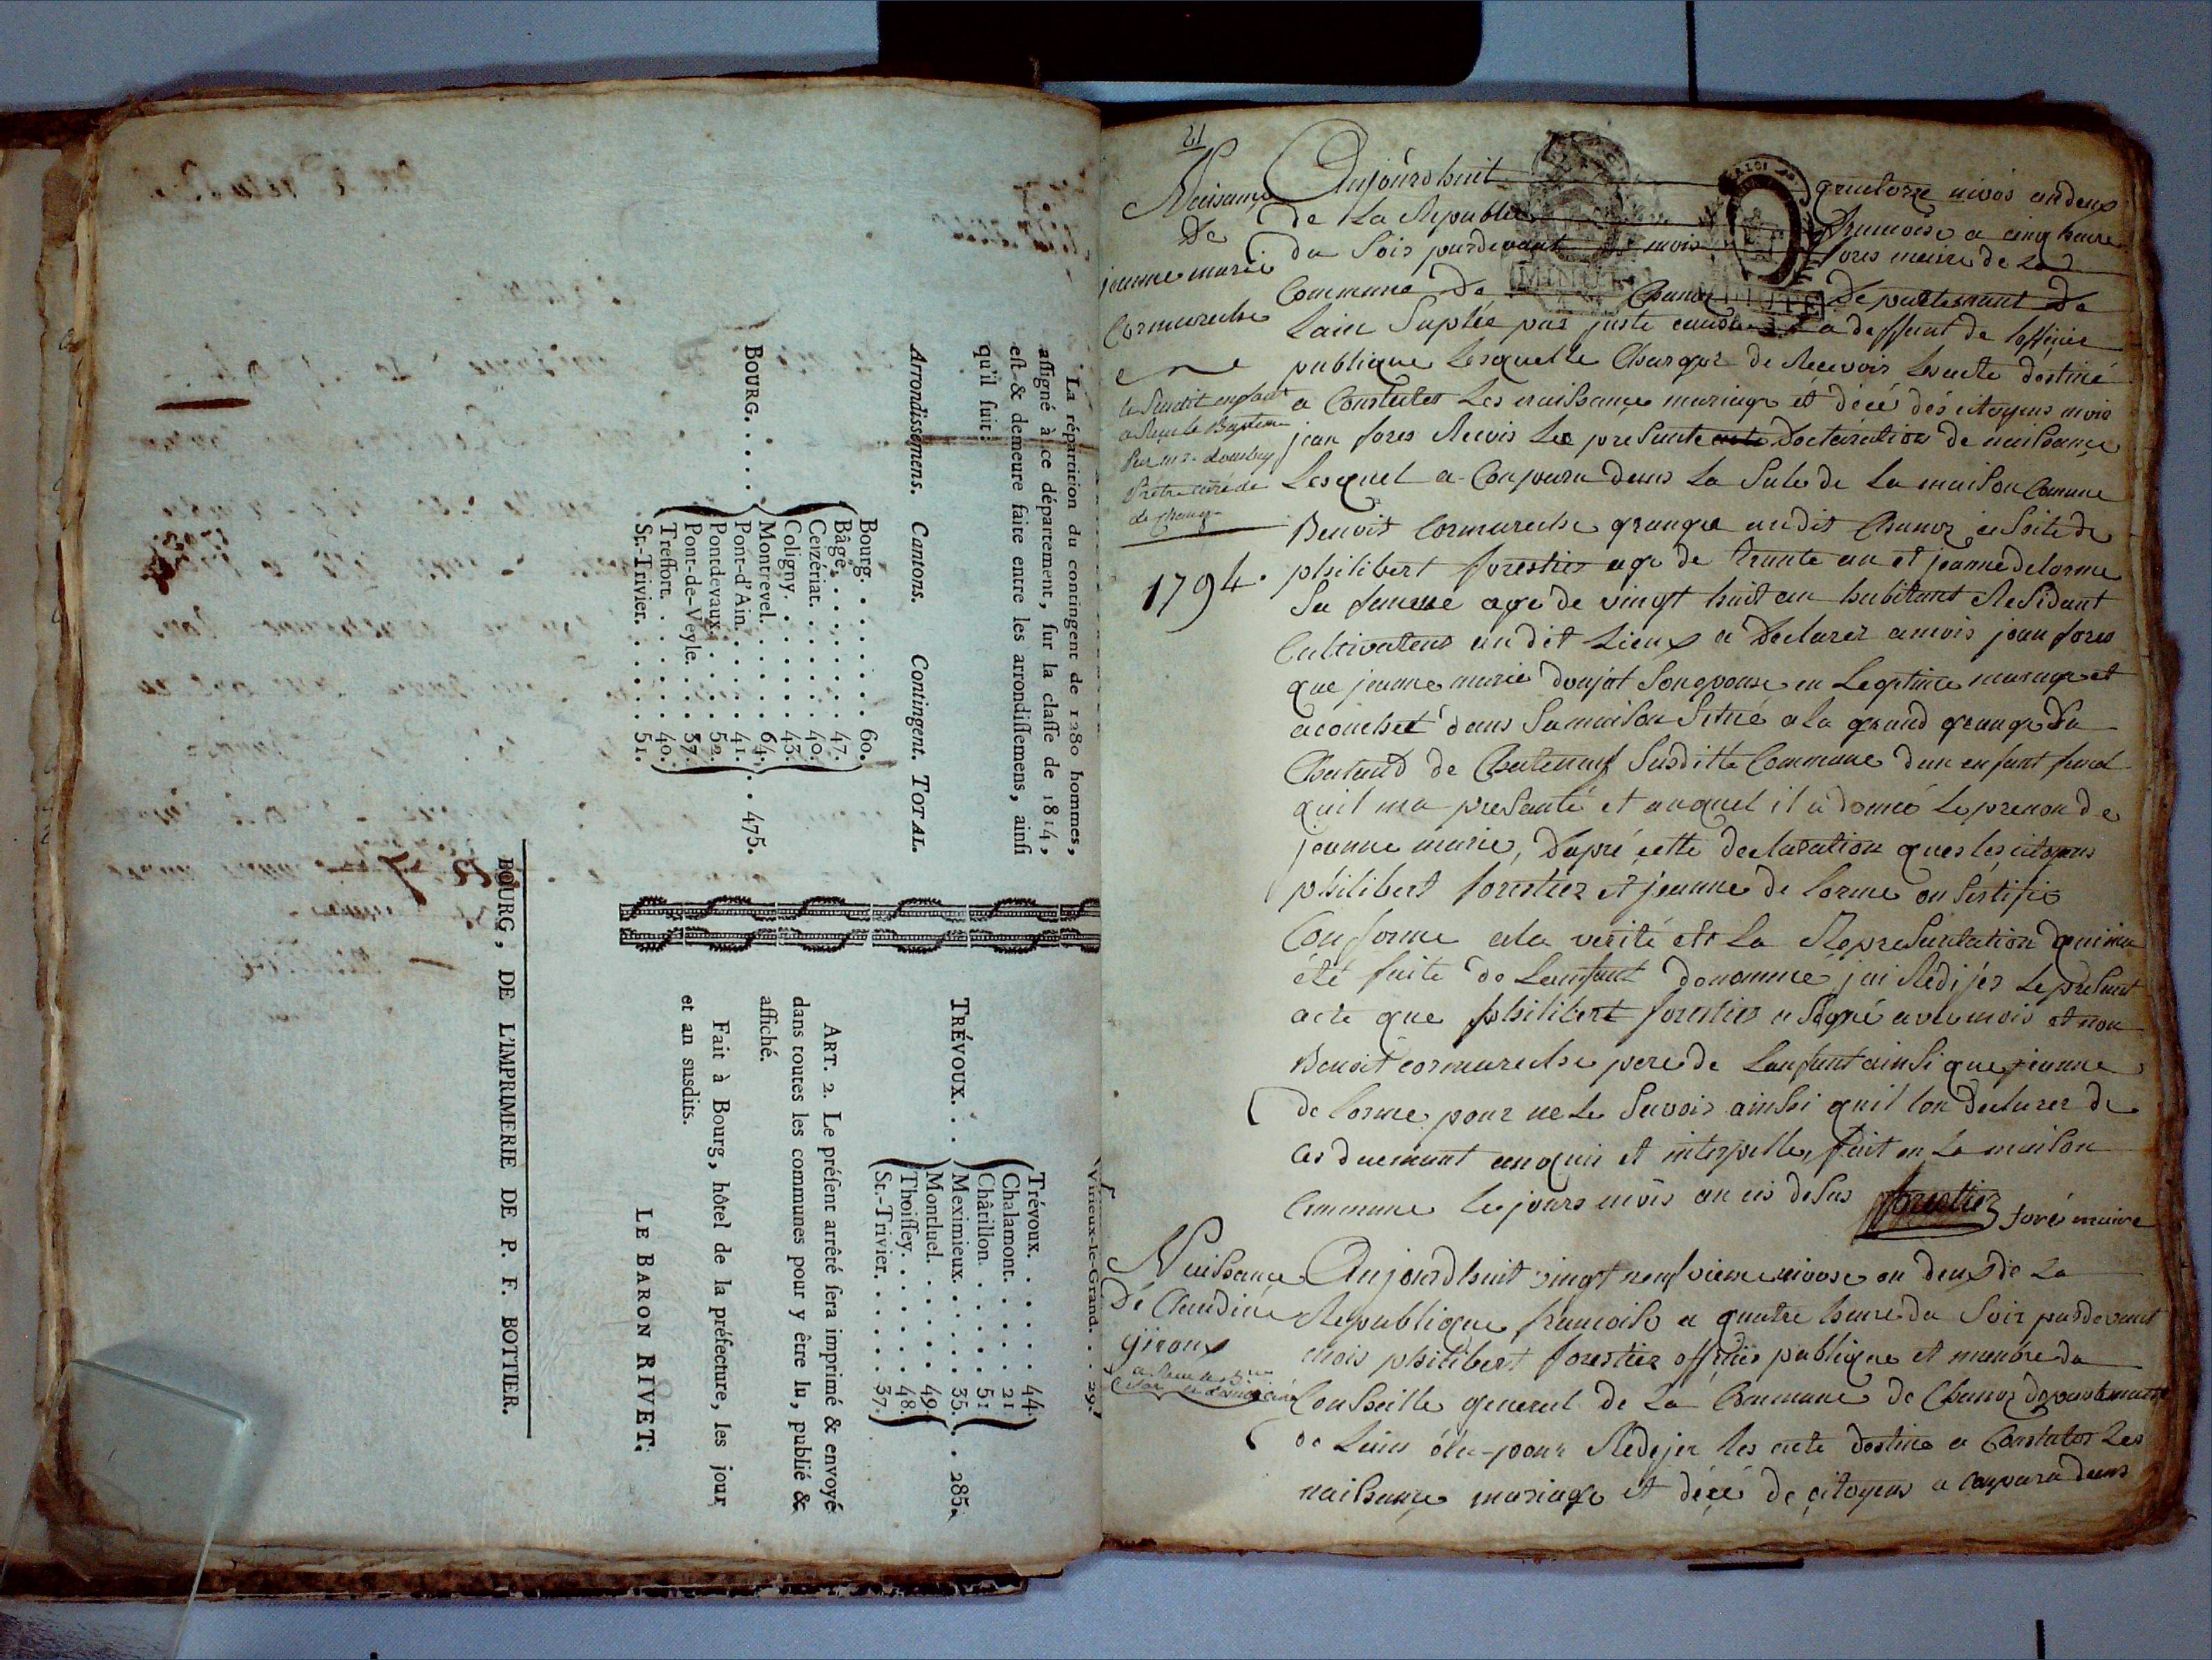 La répartition du contingent de 1280 hommes,
assigné à ce département, sur la classe de 1814,
est & demeure faite entre les arrondissemens, ainsi
qu'il suit:
Arrondissemens. Cantons. Contingent. TOTAL.
Bourg. . . . . . . 60.
Bâgé. . . . . . . 47.
Ceizériat. . . . . . 40.
Coligny. . . . . . 43.
Montrevel. . . . . . 64.
BOURG. . . . . Pont-d'Ain. . . . . . 41. . . 475.
Pontdevaux. . . . . 52.
Pont-de-Veyle. . . . 37.
Treffort. . . . . . 40.
St.-Trivier. . . . . . 51.
Virieux-le-Grand. . . 29.
Trévoux. . . . . . 44.
Chalamont. . . . . 21.
Châtillon. . . . . . 51.
TRÉVOUX. . . Meximieux. . . . . 35. . . 285.
Montluel. . . . . . 49.
Thoissey. . . . . . 48.
St.-Trivier. . . . . . 37.
ART. 2. Le présent arrêté sera imprimé & envoyé
dans toutes les communes pour y être lu, publié &
affiché.
Fait à Bourg, hôtel de la préfecture, les jour
et an susdits.
LE BARON RIVET.
BOURG, DE L'IMPRIMERIE DE P. F. BOTTIER.
21
Naisance
De
jeanne marie
Cormareche
le Susdit enfant
a Reçu le Bapteme
par mr.
Prêtre curé de
de Chanoz
1794.
Aujourdhuit quatorze nivos an deux
de La Republi francoise a cinq heure
du Soir pardevant mois fores maire de La
Commune De Chanoz Departemant De
Lain Suplée par juste cause a deffaut de lofficier
publique Lesquelle Charger de Recevoir Les acte destiné
a Constater Les naissance mariage et décé des citoyens mois
jean fores Recois La presante Declaration de naissance
Lesquel a Conparu dans La Sale de La maison Comune
Benoit Cormareche granger audit Chanoz ensuite de
philibert forestier age de trante an et jeanne delorme
Sa famme age de vingt huit an habitant Residant
Cultivateur audit Lieux a Declarer a mois jean fores
que jeanne marie donjat Son epouse en Legitime mariage et
acouchet dans Sa maison Situé a la grand grange du
Chataud de Chateneuf Susditte Commune dun enfant femel
quil ma presanté et auquel il a donné Le prenon de
jeanne marie, Dapré cette declaration ques les citoyens
philibert forestier et jeanne de lorme on Sertifie
Conforme a la verité et La Represantation qui ma
été faite de Lanfant denommé jai Redijer Le presant
acte que philibert forestier a Signé avec mois et non
Benoit cormareche pere de Lanfant ainsi que jeanne
de lorme pour ne Le Savoir ainssi quil lon declarer de
ces duemant enquis et interpelle, fait en La maison
Commune Les jours mois an cis desus forestier foré maire
Naissance
De Claudine
giroux
Aujourdhuit vingt neuvieme nivose an deux de La
Republique francoise a quatre heure du Soir pardevant
mois philibert forestier officier publique et menbre du
Conseille general de La Commune de Chanoz departemant
de Lain élu pour Redijer les acte destine a Constater Les
naissance mariage et décé de citoyens a Conparu dans